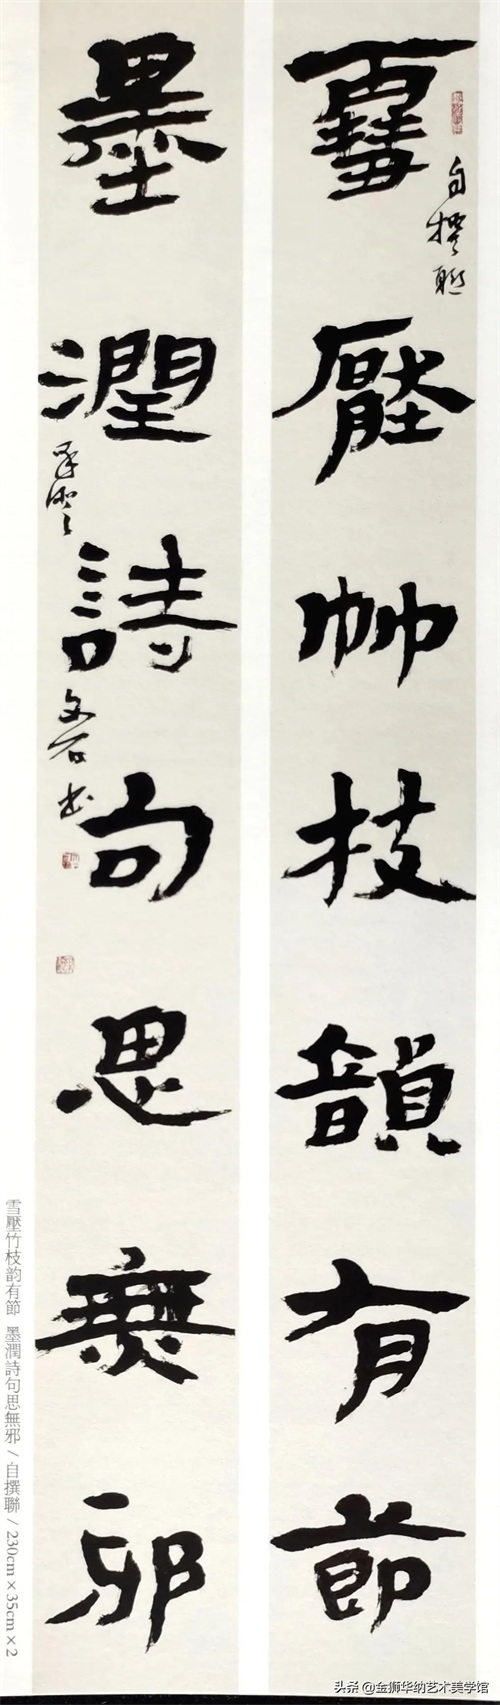 雪壓竹枝韻有節
自撰聯
墨潤詩句思無邪
雪壓竹枝韵有節 墨潤詩句思無邪 / 自撰聯 / 230cm×35cm×2
头条 @金狮华纳艺术美学馆